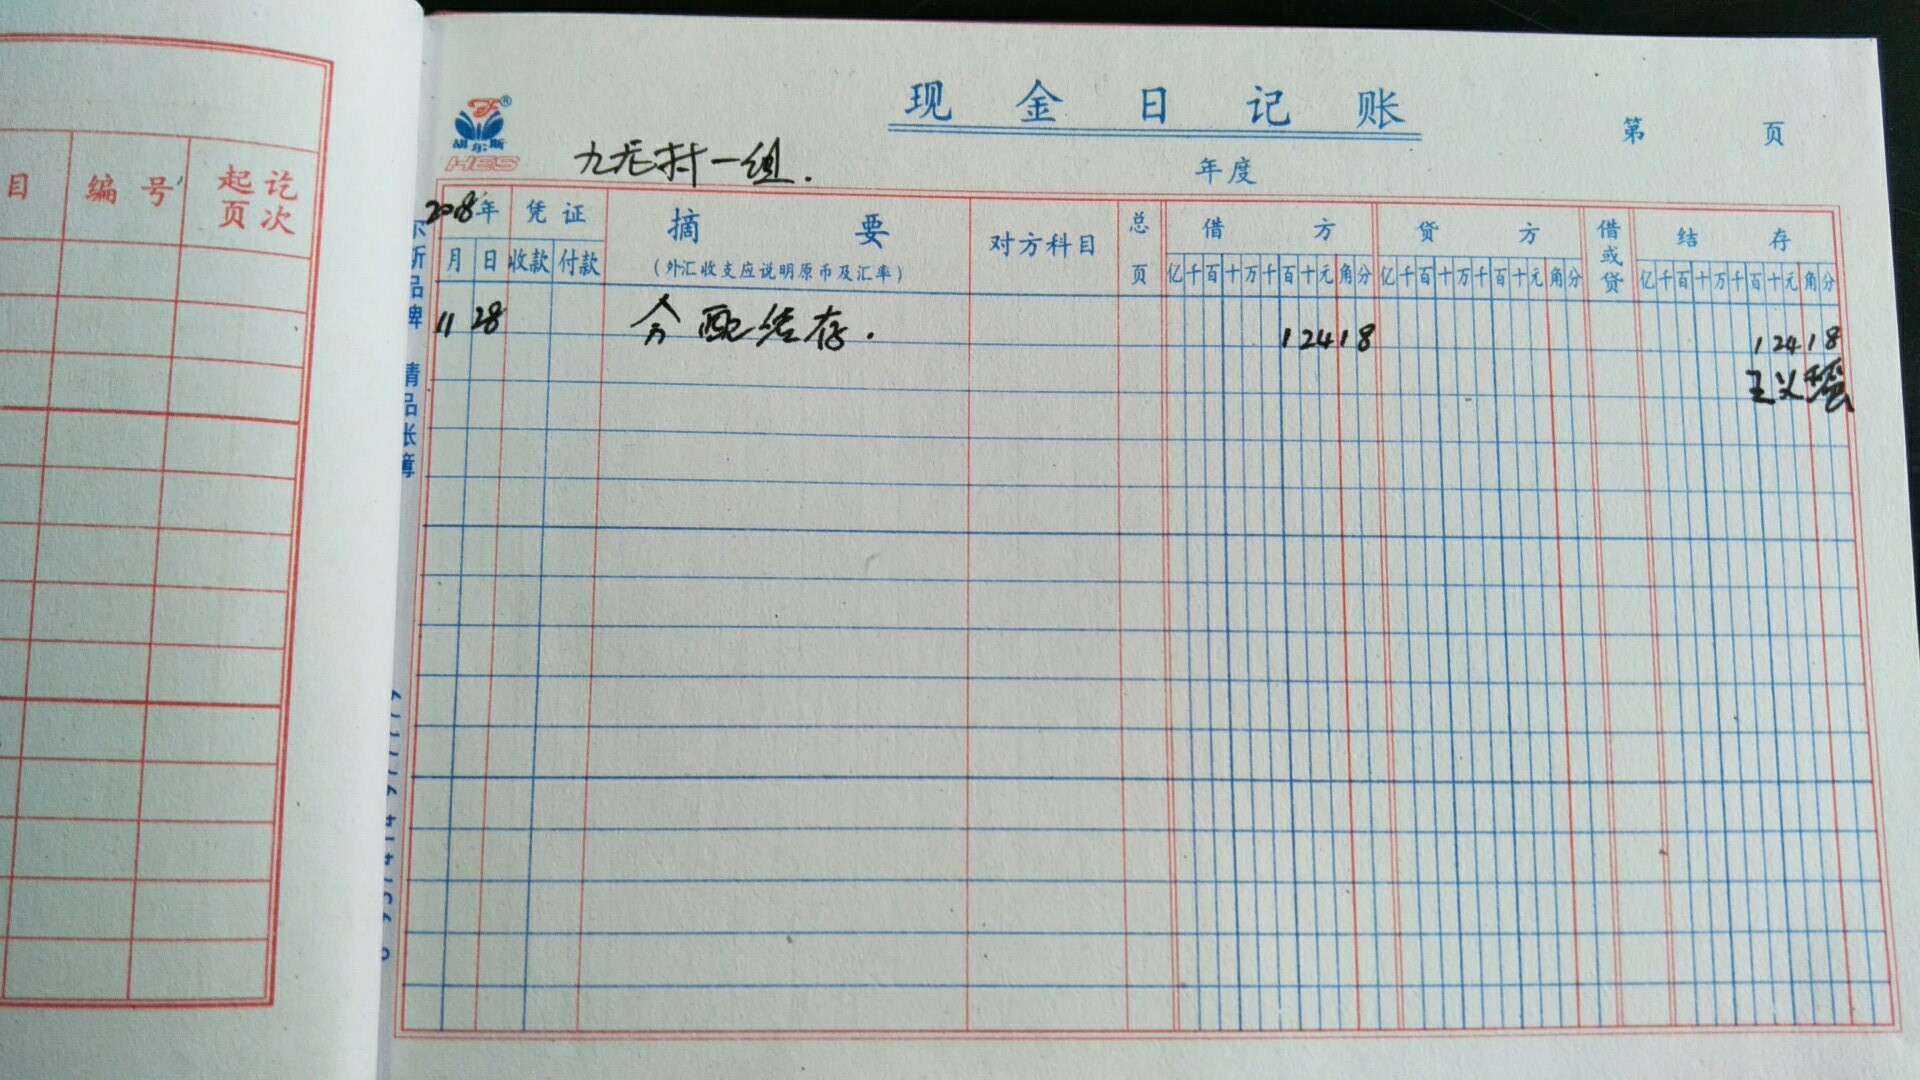 现金日记账
胡尔斯
HES
九龙村一组.
年度
第 页
目 编号 起讫页次
2018年 凭证 摘要 对方科目 总页 借方 贷方 借或贷 结存
月 日 收款 付款 (外汇收支应说明原币及汇率) 亿千百十万千百十元角分 亿千百十万千百十元角分 亿千百十万千百十元角分
11 28 分配结存. 12418 12418
王义
尔斯品牌 精品帐簿